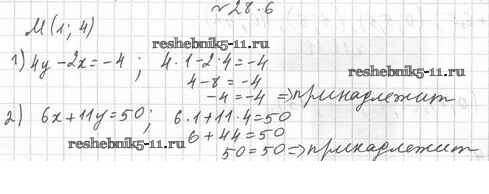 №28.6
M(1; 4)
reshebnik5-11.ru
1) 4y-2x=-4; 4·1-2·4=-4
4-8=-4
reshebnik5-11.ru
-4=-4 ⇒принадлежит
2) 6x+11y=50; 6·1+11·4=50
6+44=50
reshebnik5-11.ru
50=50⇒принадлежит